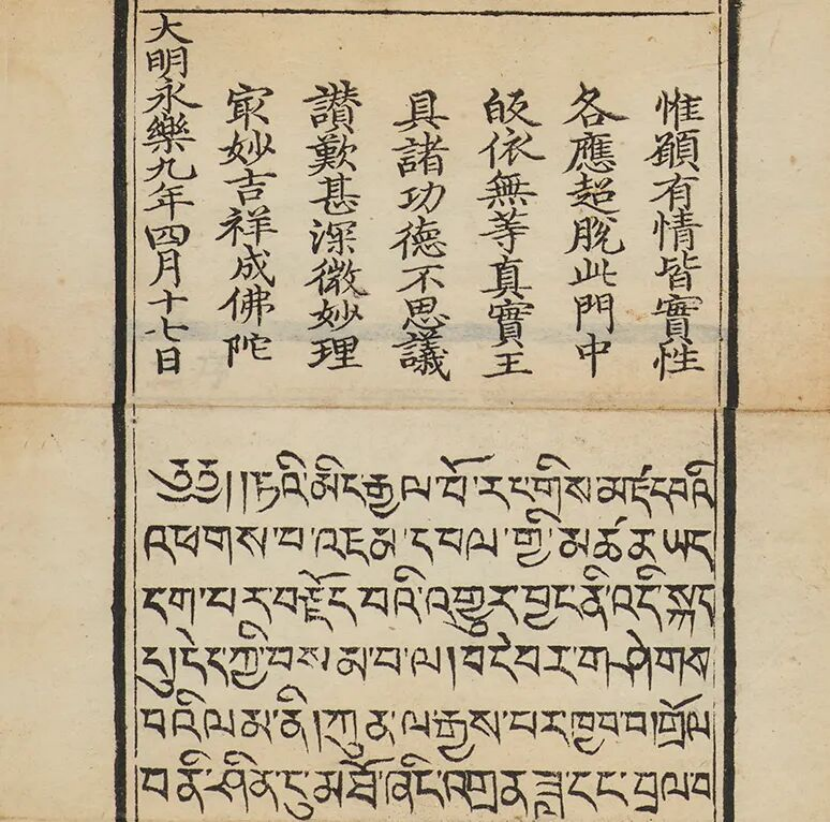 惟願有情皆實性
各應超脫此門中
皈依無等真實王
具諸功德不思議
讃歎甚深微妙理
㝡妙吉祥成佛陀
大明永樂九年四月十七日
༄༅། །ཏཱའི་མིང་རྒྱལ་པོ་རང་གིས་མཛད་པའི
འཕགས་པ་འཇམ་དཔལ་གྱི་མཚན་ཡང
དག་པར་བརྗོད་པའི་འགྱུར་བྱང་ནི་འདི་སྐད
དུ། དེད་ཀྱི་བསམ་པ་ལ། བདེ་བར་གཤེགས
པའི་ལམ་ནི། ཀུན་ལ་རྒྱས་པར་ཁྱབ་པ། གྲོལ
བ་ནི་ཤིན་ཏུ་མཐོ་ཞིང་འགྲན་ཟླ་དང་བྲལ་བ